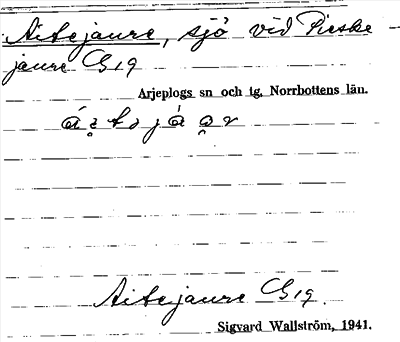 Aitejaure, sjö vid Pieske-
jaure G 19
Arjeplogs sn och tg, Norrbottens län.
Aitejaure G 19.
Sigvard Wallström, 1941.